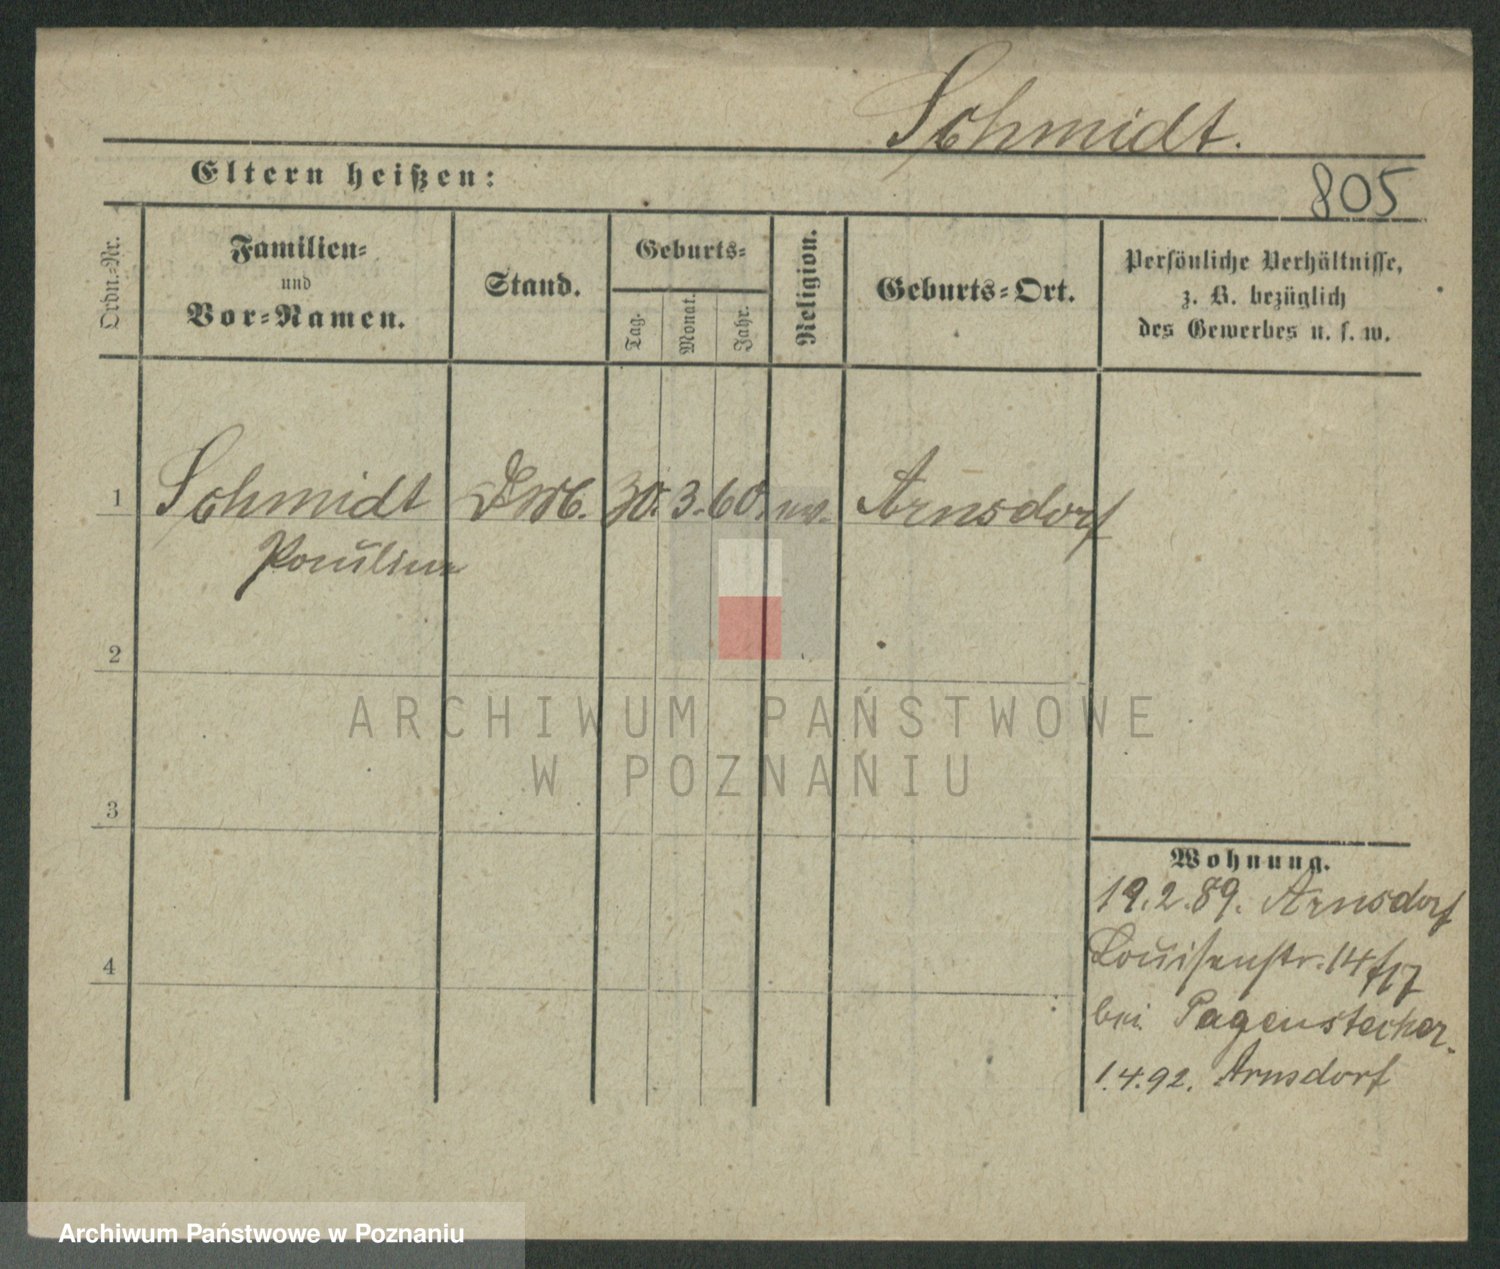 Schmidt.
Eltern heißen:
805
Ordn.=Nr.
Familien=
und
Vor=Namen.
Stand.
Geburts=
Tag.
Monat.
Jahr.
Religion.
Geburts=Ort.
Persönliche Verhältnisse,
z. B. bezüglich
des Gewerbes u. s. w.
1 Schmidt 30. 3. 60. ev. Arnsdorf
Pauline
2
3
4
Wohnung.
19.2.89. Arnsdorf
Louisenstr. 14/17
bei Pagenstecher.
1.4.92. Arnsdorf
ARCHIWUM PAŃSTWOWE
W POZNANIU
Archiwum Państwowe w Poznaniu